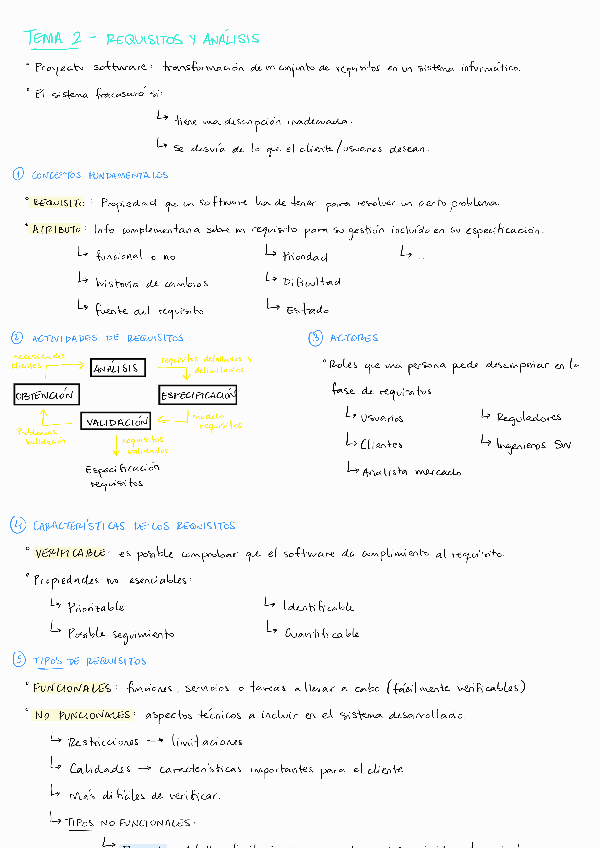 TEMA 2 - REQUISITOS Y ANÁLISIS
° Proyecto software: transformación de un conjunto de requisitos en un sistema informático.
° El sistema fracasará si:
↳ tiene una descripción inadecuada.
↳ se desvía de lo que el cliente/usuarios desean.
① CONCEPTOS FUNDAMENTALES
° REQUISITO: Propiedad que un software ha de tener para resolver un cierto problema.
° ATRIBUTO: Info complementaria sobre un requisito para su gestión incluido en su especificación.
↳ funcional o no ↳ Prioridad ↳ ...
↳ historia de cambios ↳ Dificultad
↳ fuente del requisito ↳ Estado
② ACTIVIDADES DE REQUISITOS
necesidades clientes
ANÁLISIS
requisitos detallados y delimitados
OBTENCIÓN
ESPECIFICACIÓN
VALIDACIÓN
Problemas validación
modelo requisitos
requisitos validados
Especificación
requisitos
③ ACTORES
° Roles que una persona puede desempeñar en la
fase de requisitos
↳ Usuarios ↳ Reguladores
↳ Clientes ↳ Ingenieros SW
↳ Analista mercado
④ CARACTERÍSTICAS DE LOS REQUISITOS
° VERIFICABLE: es posible comprobar que el software da cumplimiento al requisito.
° Propiedades no esenciales:
↳ Priorizable ↳ Identificable
↳ Posible seguimiento ↳ Cuantificable
⑤ TIPOS DE REQUISITOS
° FUNCIONALES: funciones, servicios o tareas a llevar a cabo (fácilmente verificables)
° NO FUNCIONALES: aspectos técnicos a incluir en el sistema desarrollado.
↳ Restricciones → limitaciones
↳ Calidades → características importantes para el cliente
↳ Más difíciles de verificar.
↳ TIPOS NO FUNCIONALES: